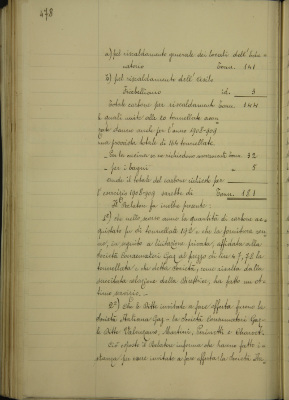 478
a) pel riscaldamento generale dei locali dell'Isti-
tutorio Tonn. 141
b) pel riscaldamento dell'Asilo
Infantile id. 3
Totale carbone per riscaldamento Tonn. 144
e quali unite alle 20 tonnellate
anche per l'anno 1908-909
una provvista totale di 164 tonnellate.
Per le cucine se ne richiedono Tonn. 32
" per i bagni " 5
sicchè il totale del carbone richiesto per
l'esercizio 1908-909 sarebbe di Tonn. 181
Il Relatore fa inoltre presente:
1°) che nello scorso anno la quantità di carbone ac-
quistata fu di tonnellate 192 e che la fornitura ven-
ne, in seguito a licitazione privata, affidata alla
Società Consumatori Gaz al prezzo di lire 47,75 la
tonnellata e che detta Società, come risulta dalla
relazione della Direzione, ha fatto un ot-
timo servizio.
2°) che le Ditte invitate a fare offerta furono la
Società Italiana Gaz - la Società Consumatori Gaz -
le Ditte
Ciò esposto il Relatore informa che hanno fatto i-
stanza per essere invitate a fare offerta: la Società